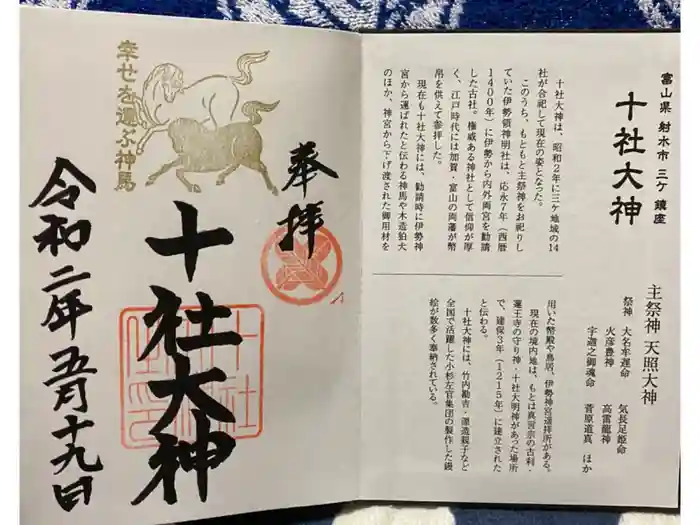 富山県 射水市 三ケ 鎮座
十社大神
主祭神 天照大神
祭神 大名牟遅命 気長足姫命
火彦豊神 高靇龍神
宇迦之御魂命 菅原道真 ほか
十社大神は、昭和2年に三ケ地域の14
社が合祀して現在の姿となった。
このうち、もともと主祭神をお祀りし
ていた伊勢領神明社は、応永7年(西暦
1400年)に伊勢から内外両宮を勧請
した古社。権威ある神社として信仰が厚
く、江戸時代には加賀・富山の両藩が幣
帛を供えて参拝した。
現在も十社大神には、勧請時に伊勢神
宮から運ばれたと伝わる神馬や木造狛犬
のほか、神宮から下げ渡された御用材を
用いた幣殿や鳥居、伊勢神宮遥拝所がある。
現在の境内地は、もとは真言宗の古刹・
蓮王寺の守り神・十社大明神があった場所
で、建保3年(1215年)に建立された
と伝わる。
十社大神には、竹内勘吉・源造親子など
全国で活躍した小杉左官集団の製作した鏝
絵が数多く奉納されている。
奉拝
幸せを運ぶ神馬
十社大神
令和二年五月十九日